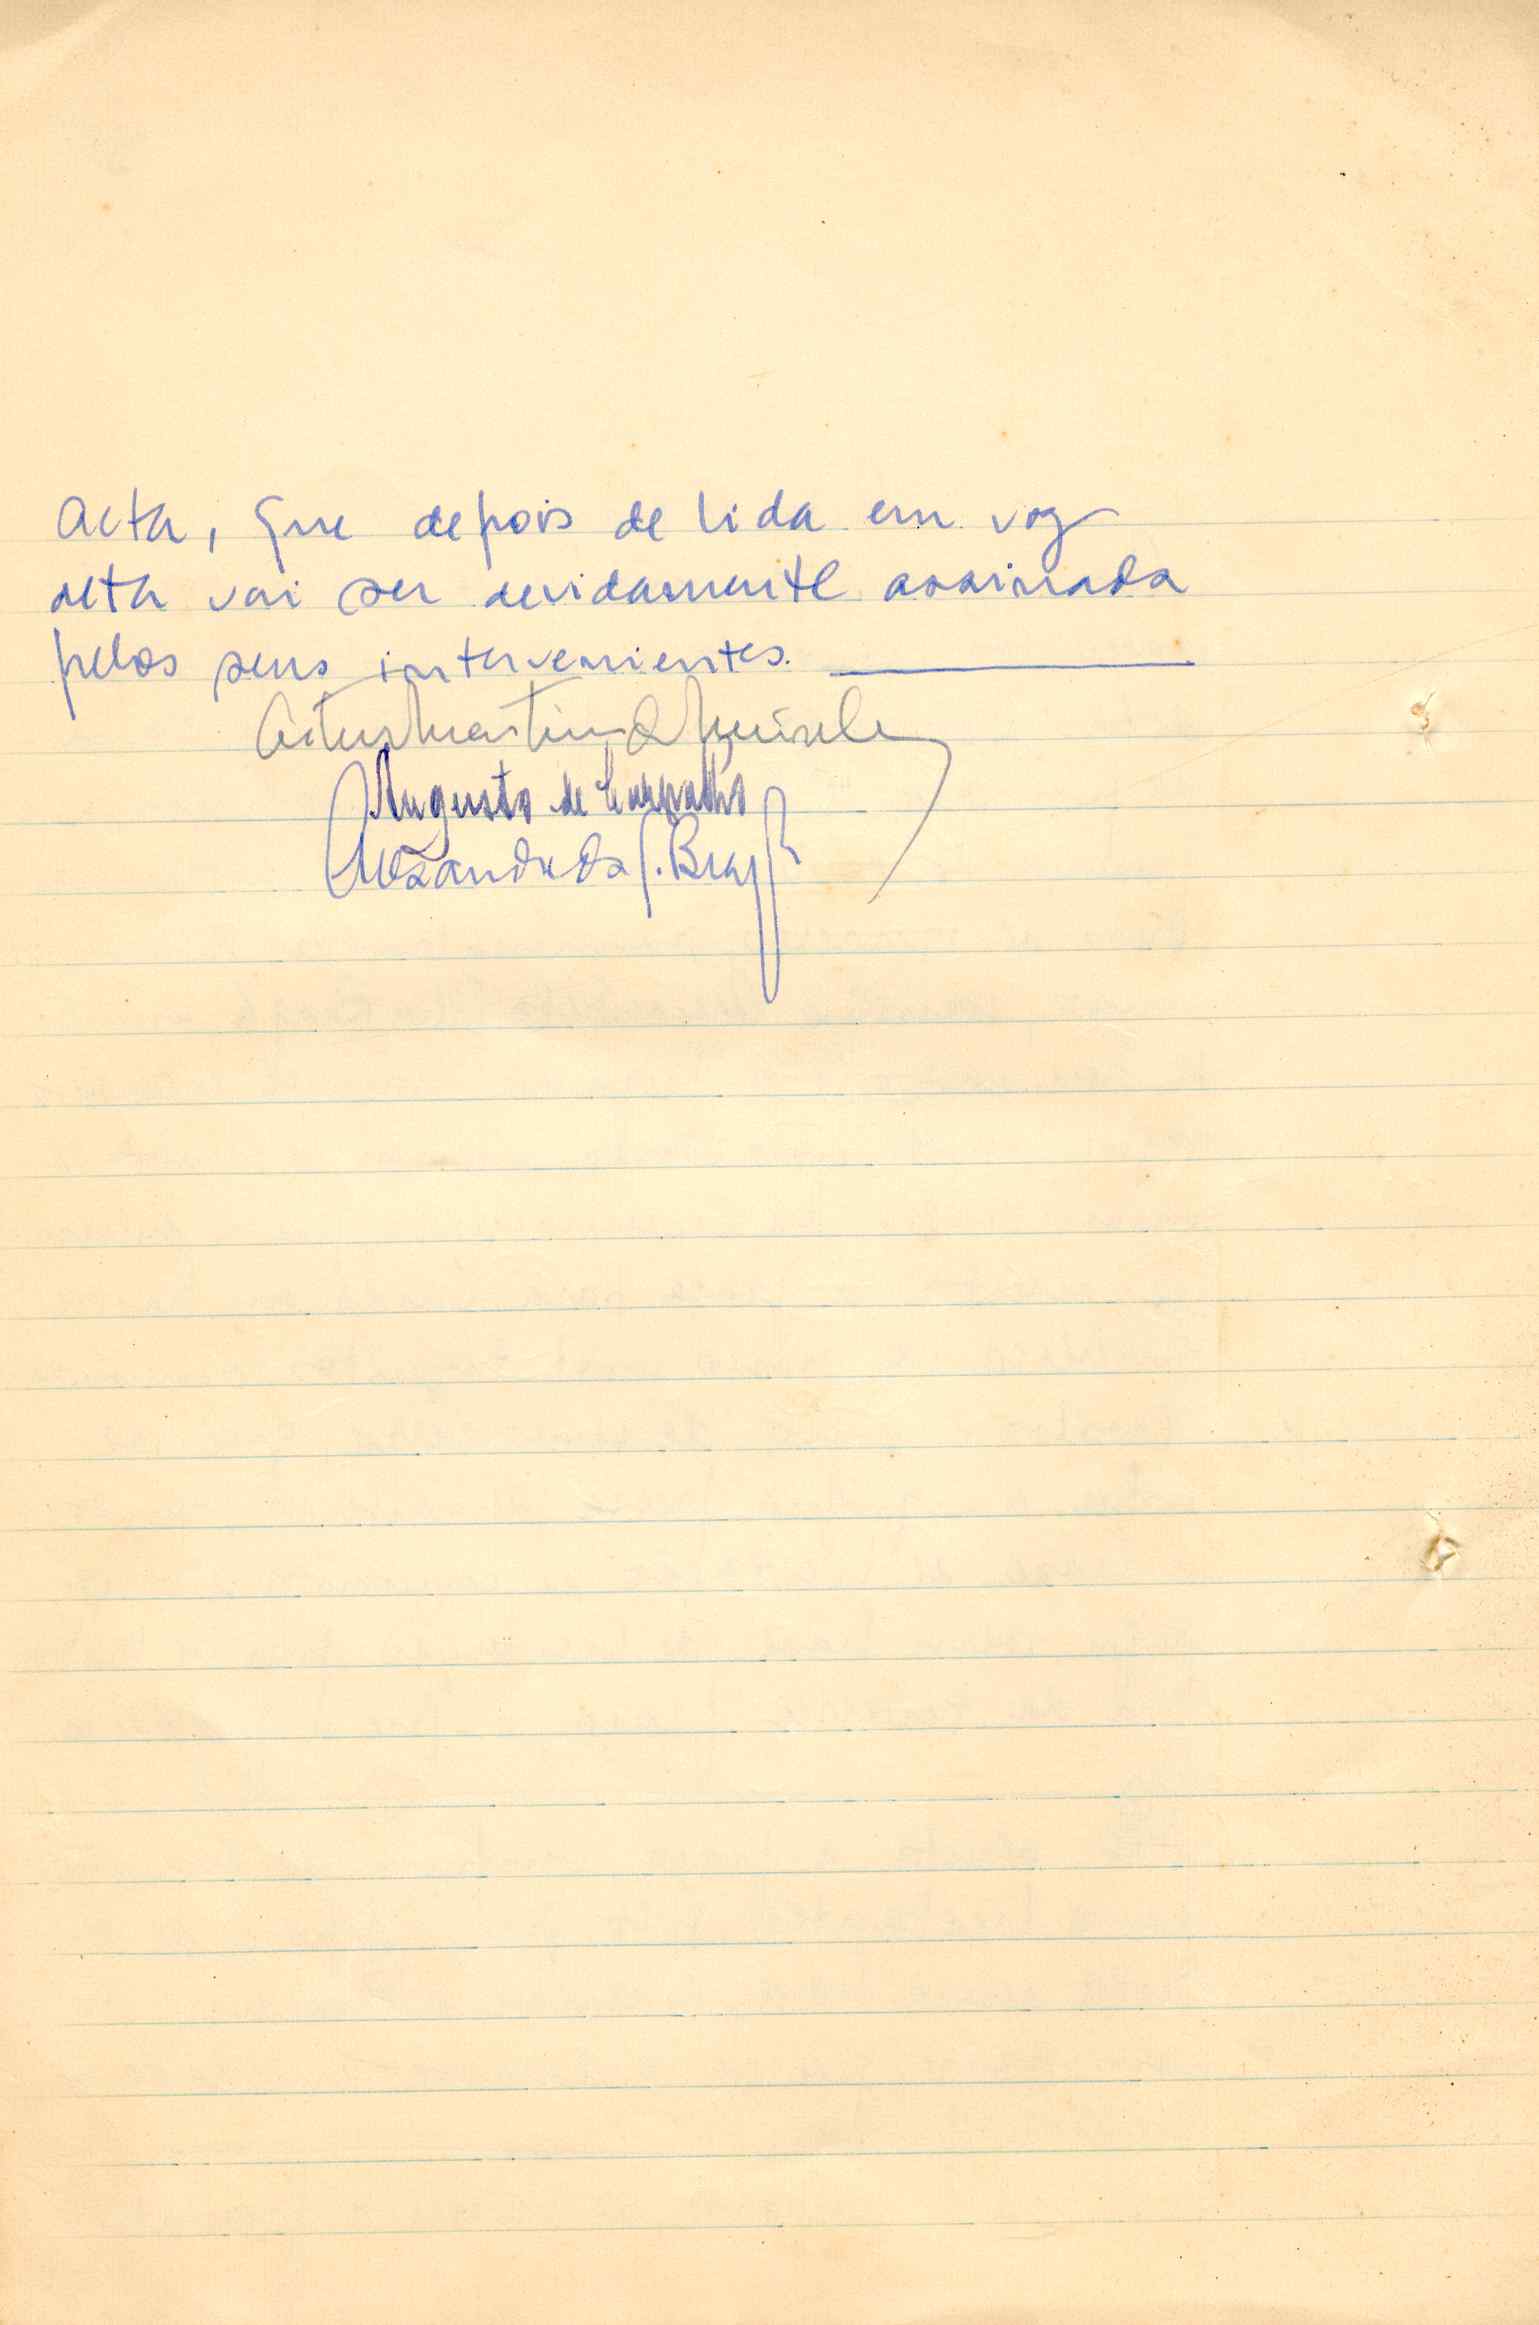 Acta, que depois de lida em voz
alta vai ser devidamente assinada
pelos seus intervenientes.
Artur Martins
Augusto de Carvalho
Alexandre da S. Braga